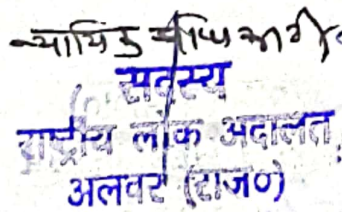 न्यायिक अधिकारी
सदस्य
राष्ट्रीय लोक अदालत,
अलवर (राज०)